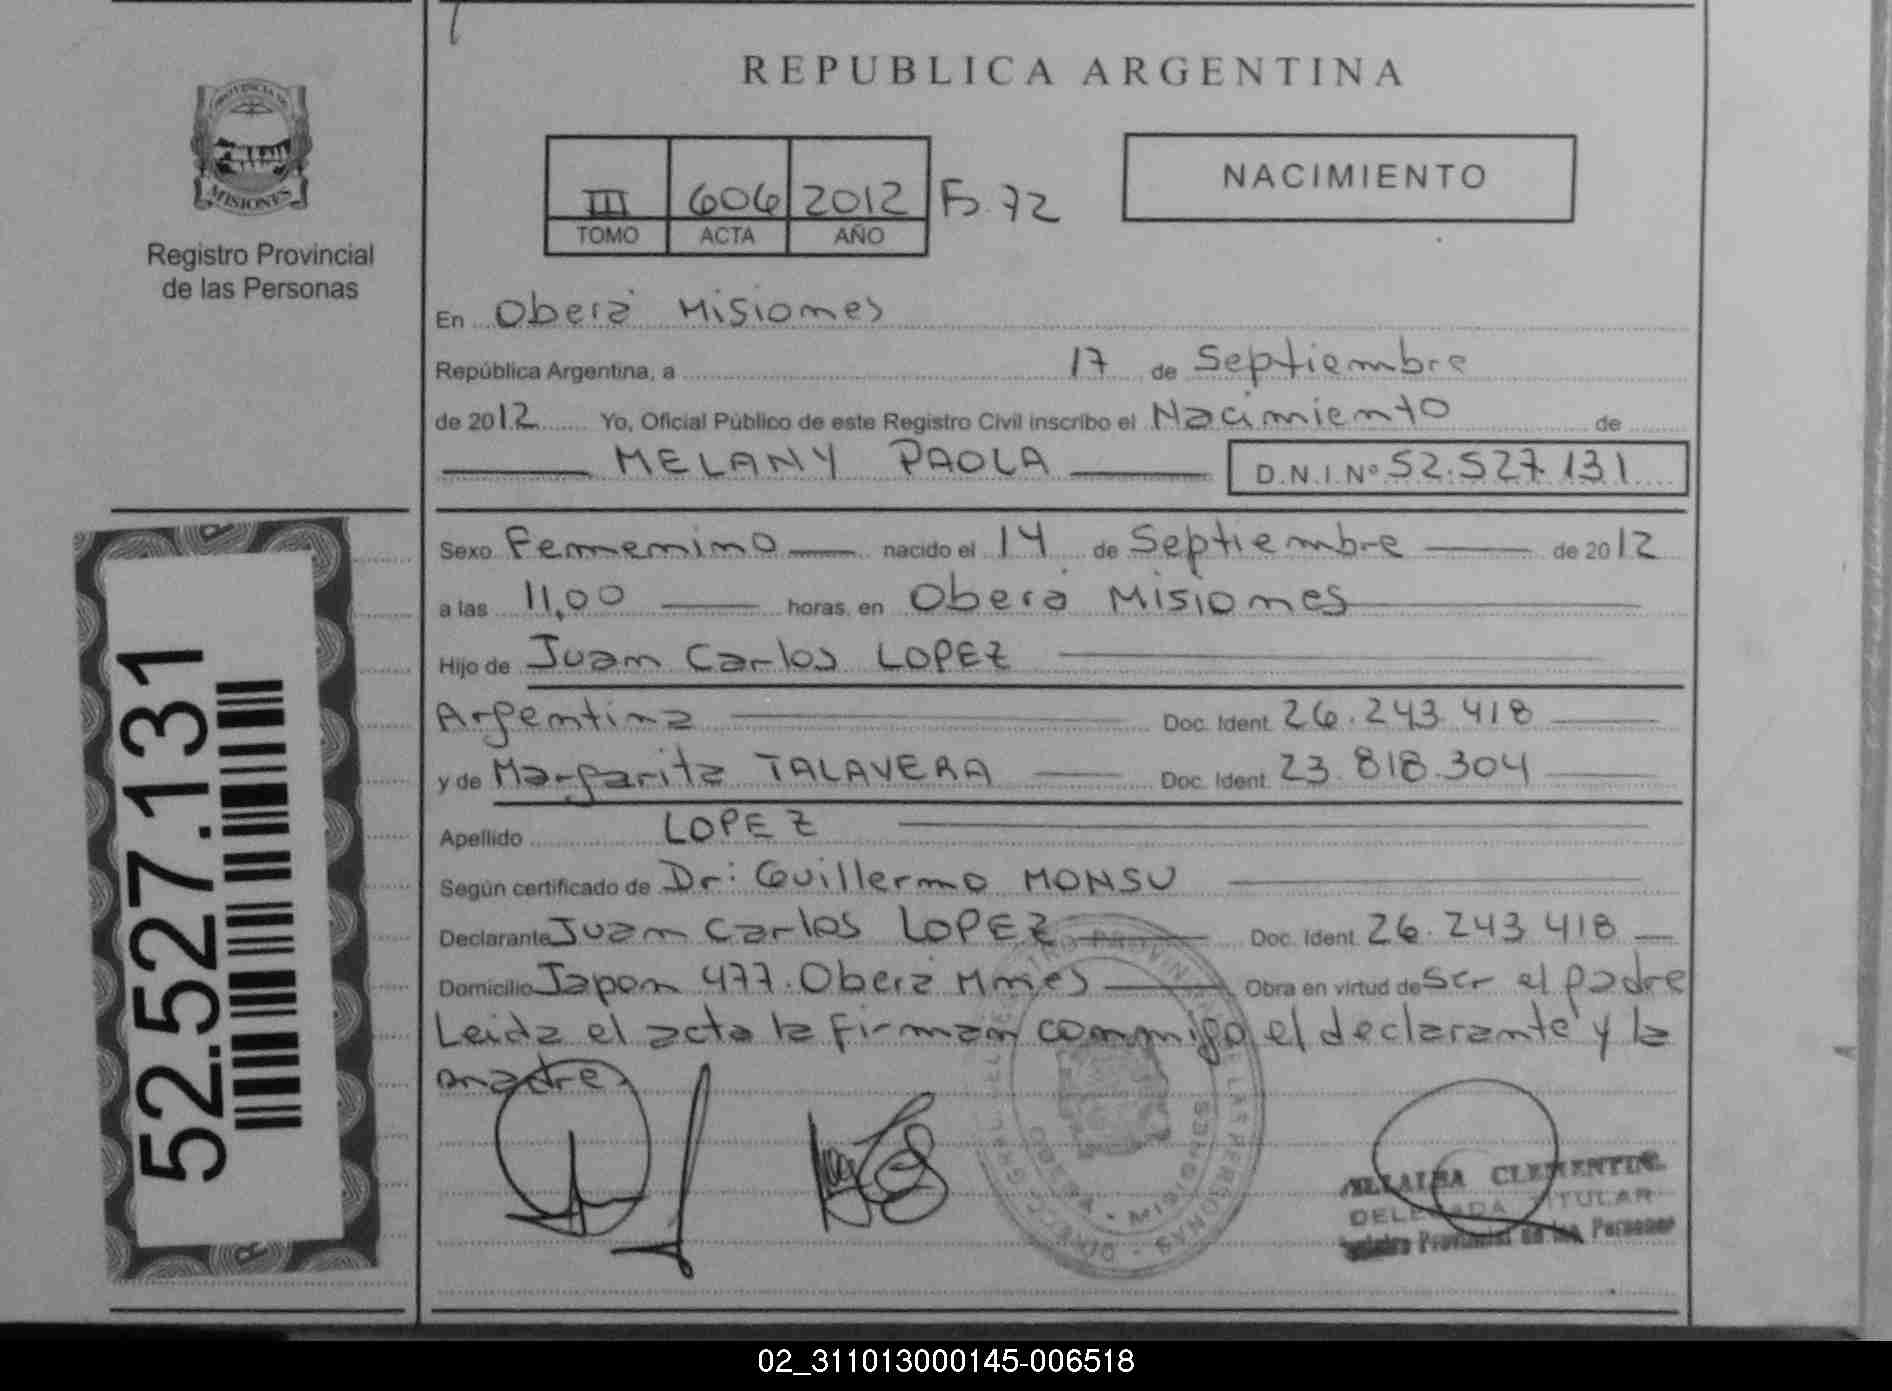 REPUBLICA ARGENTINA
PROVINCIA DE
MISIONES
Registro Provincial
de las Personas
III 606 2012 Fo. 72
TOMO ACTA AÑO
NACIMIENTO
En Oberá Misiones
República Argentina, a 17 de Septiembre
de 2012 Yo, Oficial Público de este Registro Civil inscribo el Nacimiento de
MELANY PAOLA D.N.I.Nº 52.527.131
Sexo Femenino nacido el 14 de Septiembre de 2012
a las 11,00 horas, en Oberá Misiones
Hijo de Juan Carlos LOPEZ
Argentina Doc. Ident. 26.243.418
y de Margarita TALAVERA Doc. Ident. 23.818.304
Apellido LOPEZ
Según certificado de Dr: Guillermo MONSU
Declarante Juan Carlos LOPEZ Doc. Ident. 26.243.418
Domicilio Japon 477. Oberá Mnes Obra en virtud de ser el padre
Leida el acta la firman conmigo el declarante y la
madre.
52.527.131
DELEGADA TITULAR
Registro Provincial de las Personas
02_311013000145-006518